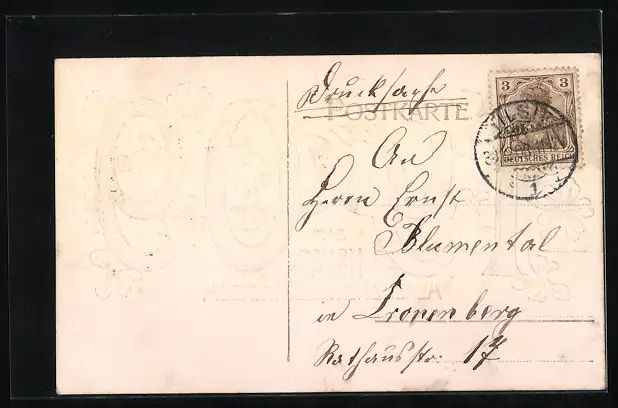 Drucksache
POSTKARTE
3 3
DEUTSCHES REICH
An
Herrn Ernst
Blumental
in Cronenberg
Rathausstr. 17